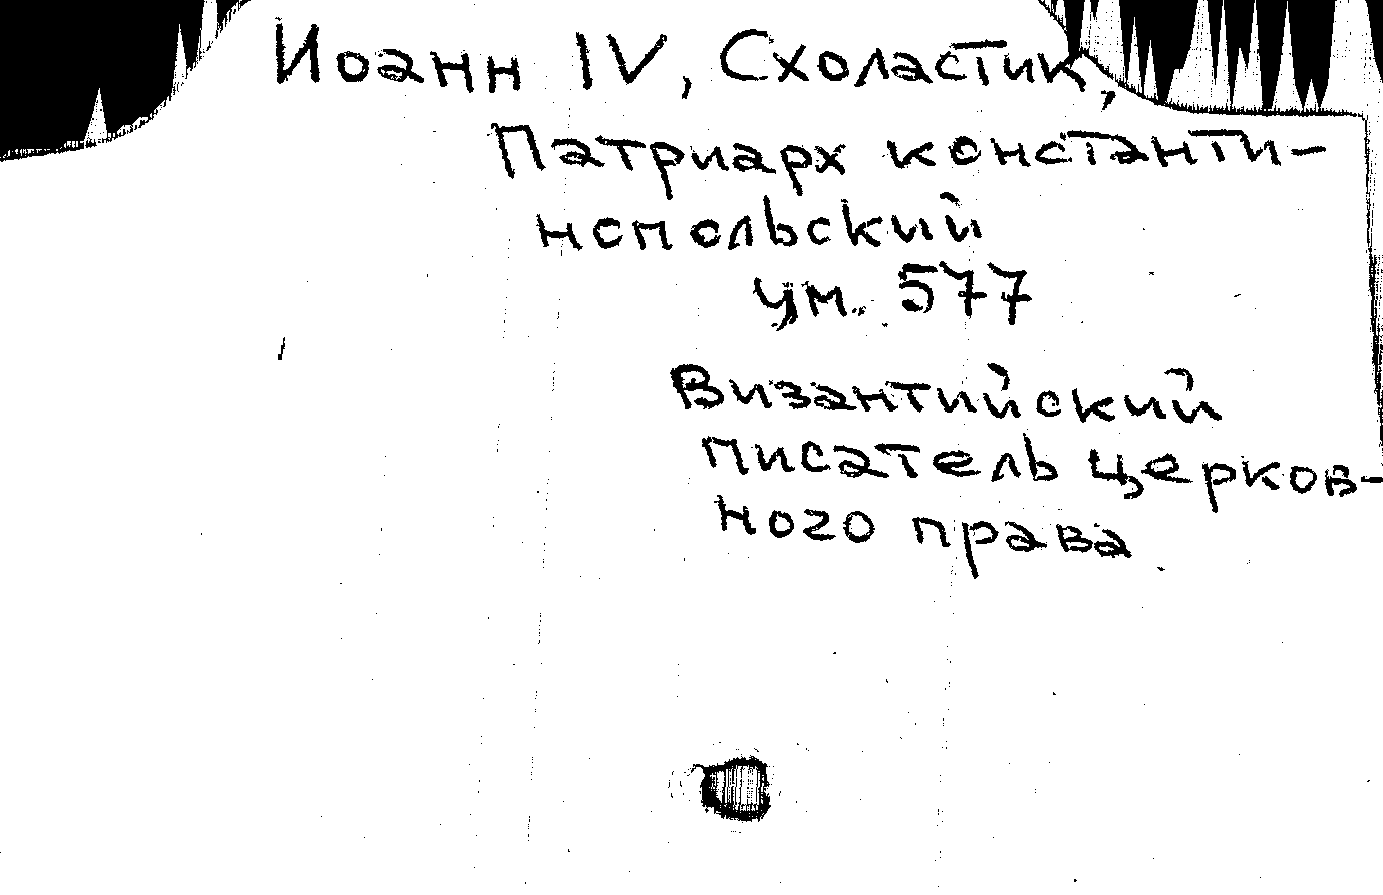 Иоанн IV, Схоластик,
Патриарх константи-
нопольский
ум. 577
Византийский
писатель церков-
ного права